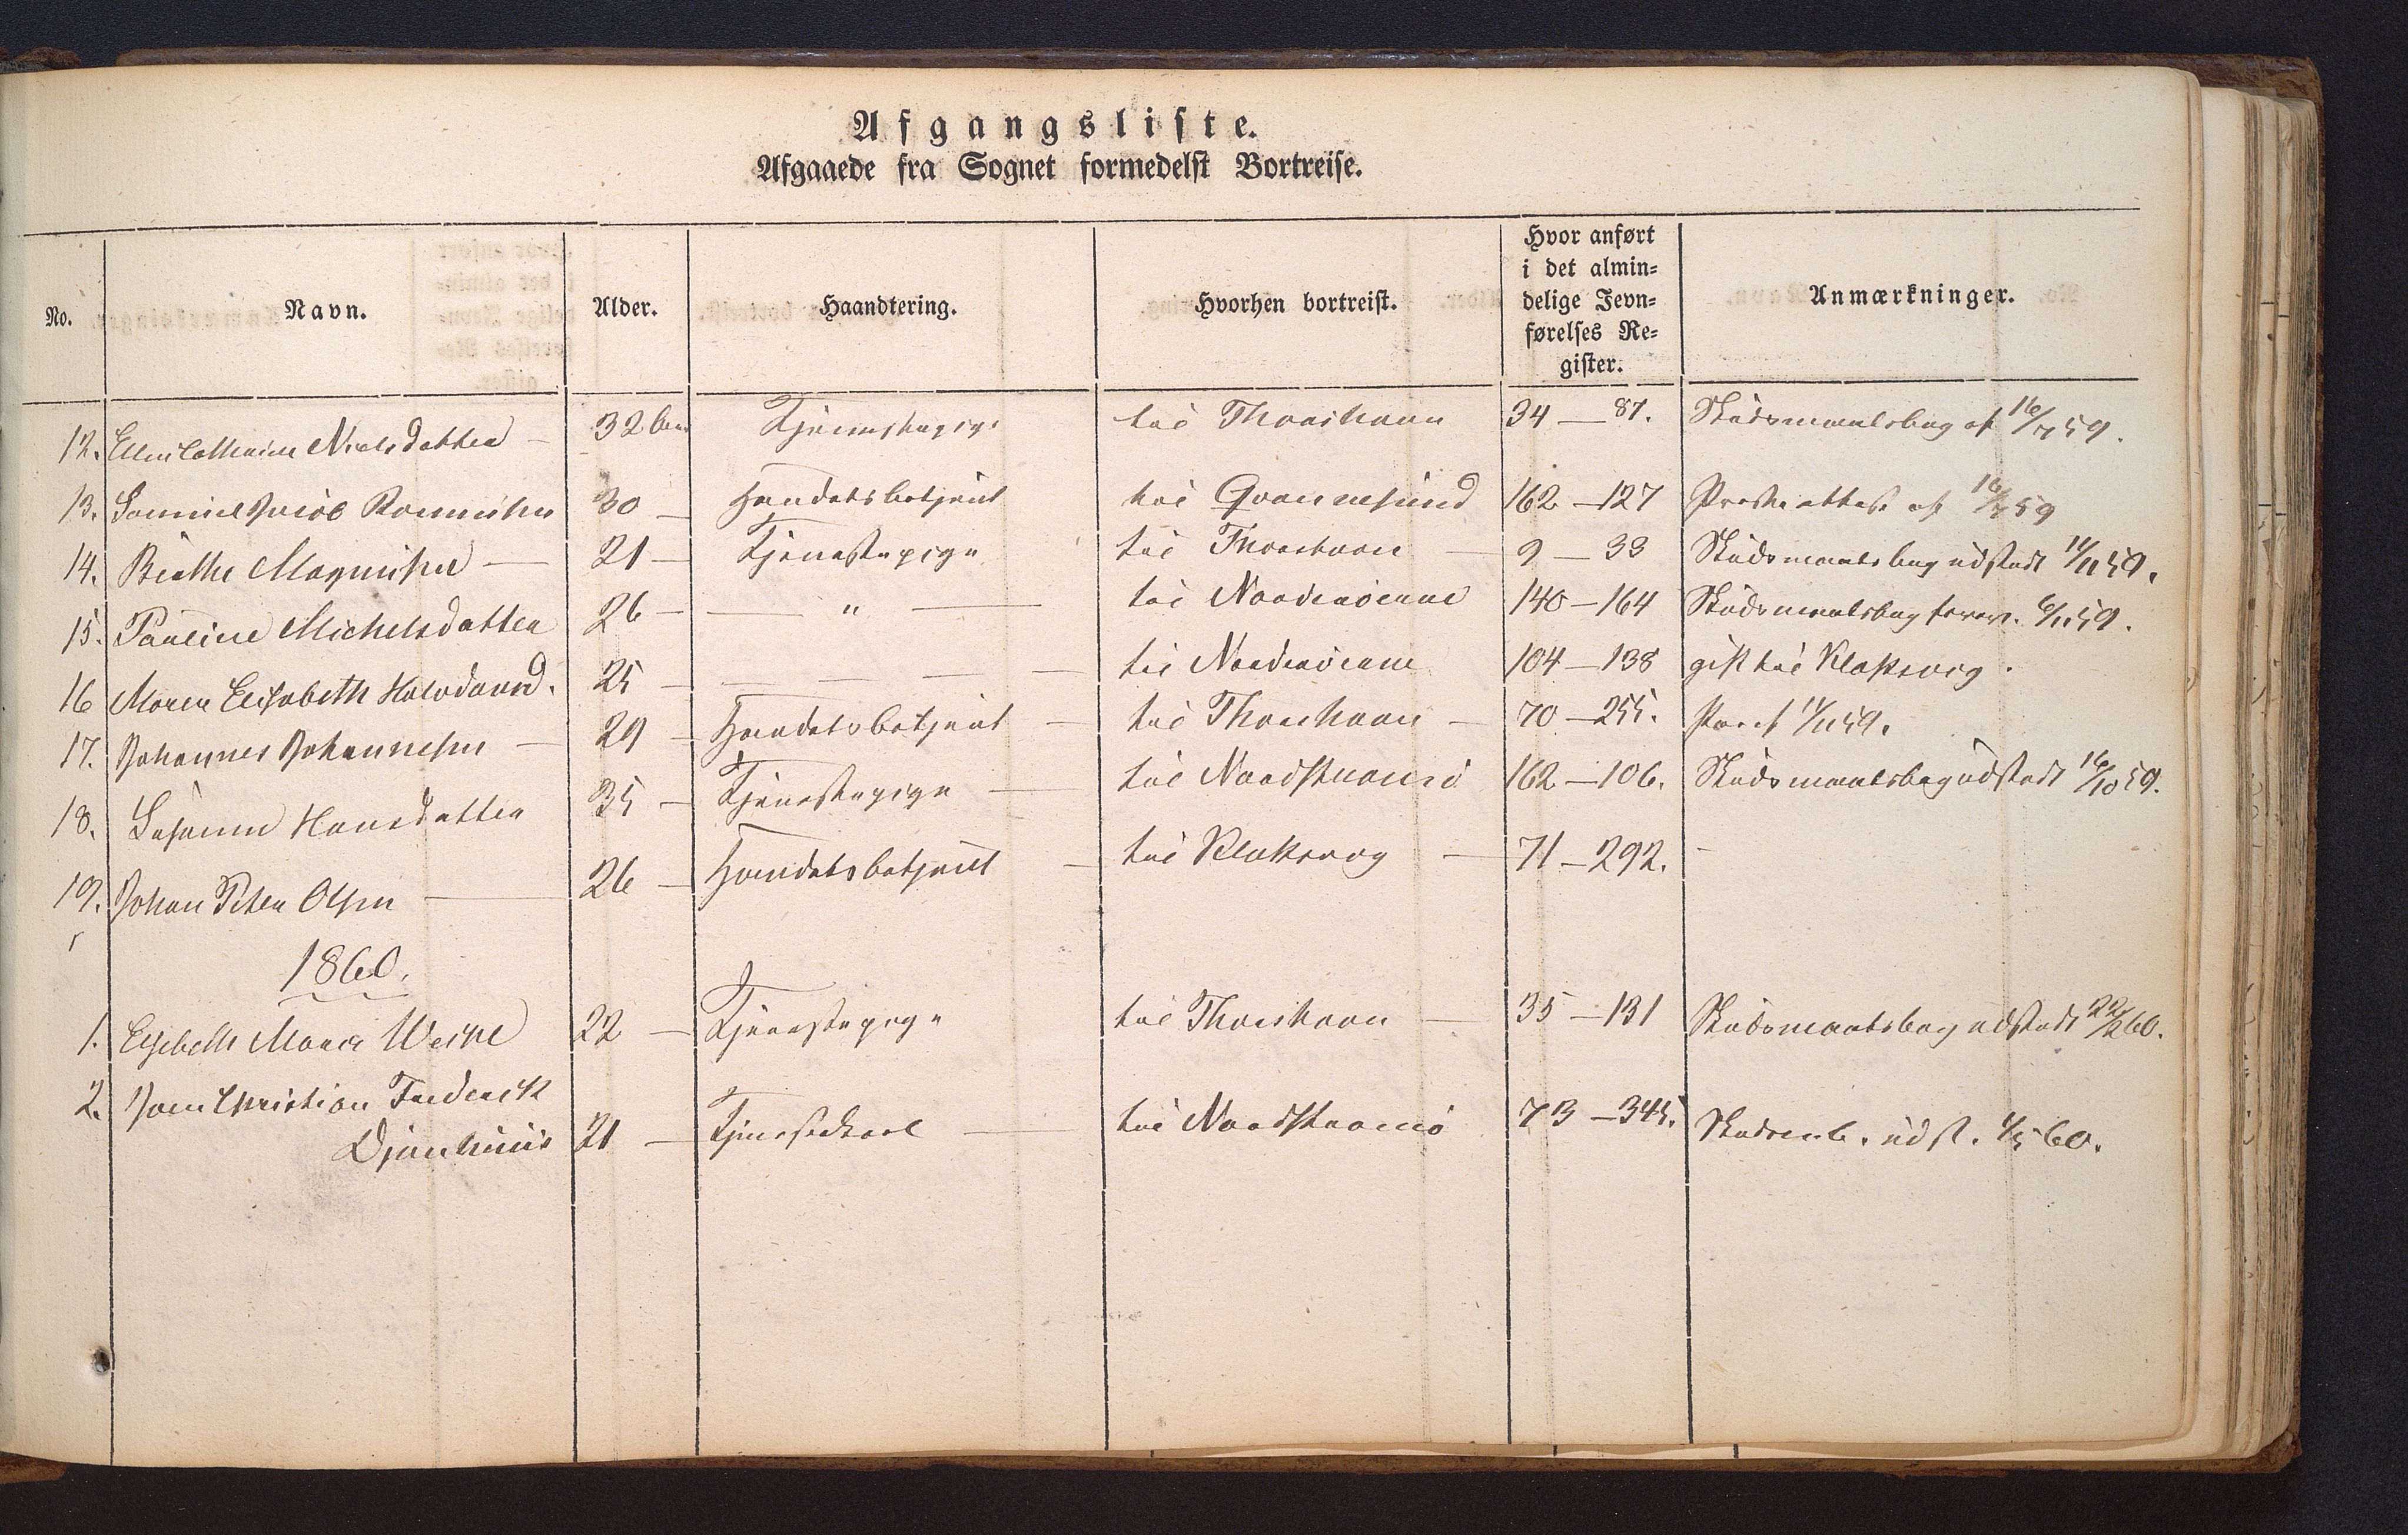 Afgangsliste.
Afgaaede fra Sognet formedelst Bortreise.
No. Navn. Alder. Haandtering. Hvorhen bortreist. Hvor anført i det almin= delige Jevn= førelses Re= gister. Anmærkninger.
12. Ellen Cathrine Nielsdatter — 32 Tjenestepige til Thorshavn 34 — 87. Skudsmaalsbog af 16/7 59.
13. Samuel Jacob Rasmussen 30 — Handelsbetjent til Qvannesund 162 — 127 Presteattest af 59
14. Birthe Magnusen — 21 — Tjenestepige til Thorshavn — 9 — 33 Skudsmaalsbog udstedt 11/11 59.
15. Pauline Michelsdatter 26 — — " — til Norderøerne 140 — 164 Skudsmaalsbog 6/11 59.
16 Maren Elisabeth 25 — — — — — til Norderøerne 104 — 138 gift til Klaksvig.
17. Johannes Johannesen — 29 — Handelsbetjent — til Thorshavn — 70 — 255. 11/11 59.
18. Susanne Hansdatter 35 — Tjenestepige — til Nordstrømø 162 — 106. Skudsmaalsbog udstedt 16/10 59.
19. Johan Peter Olsen — 26 — Handelsbetjent — til Klaksvig — 71 — 292. —
1860.
1. Elsebeth Maria Weihe 22 — Tjenestepige til Thorshavn — 35 — 131 Skudsmaalsbog udstedt 22/2 60.
2. Joen Christian Frederik
Djonhuus 21 — Tjenestekarl — til Nordstrømø 73 — 345. Skudsmb. udst. 4/5 60.